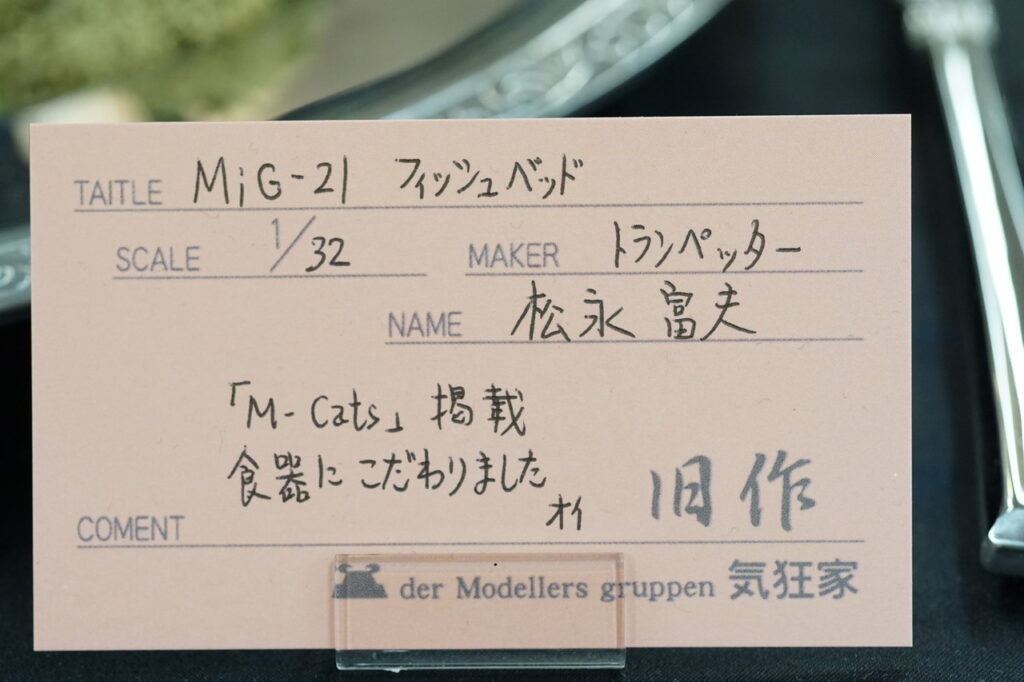 TAITLE MiG-21 フィッシュベッド
SCALE 1/32 MAKER トランペッター
NAME 松永富夫
「M-Cats」掲載
食器にこだわりました
オイ
旧作
COMENT
der Modellers gruppen 気狂家